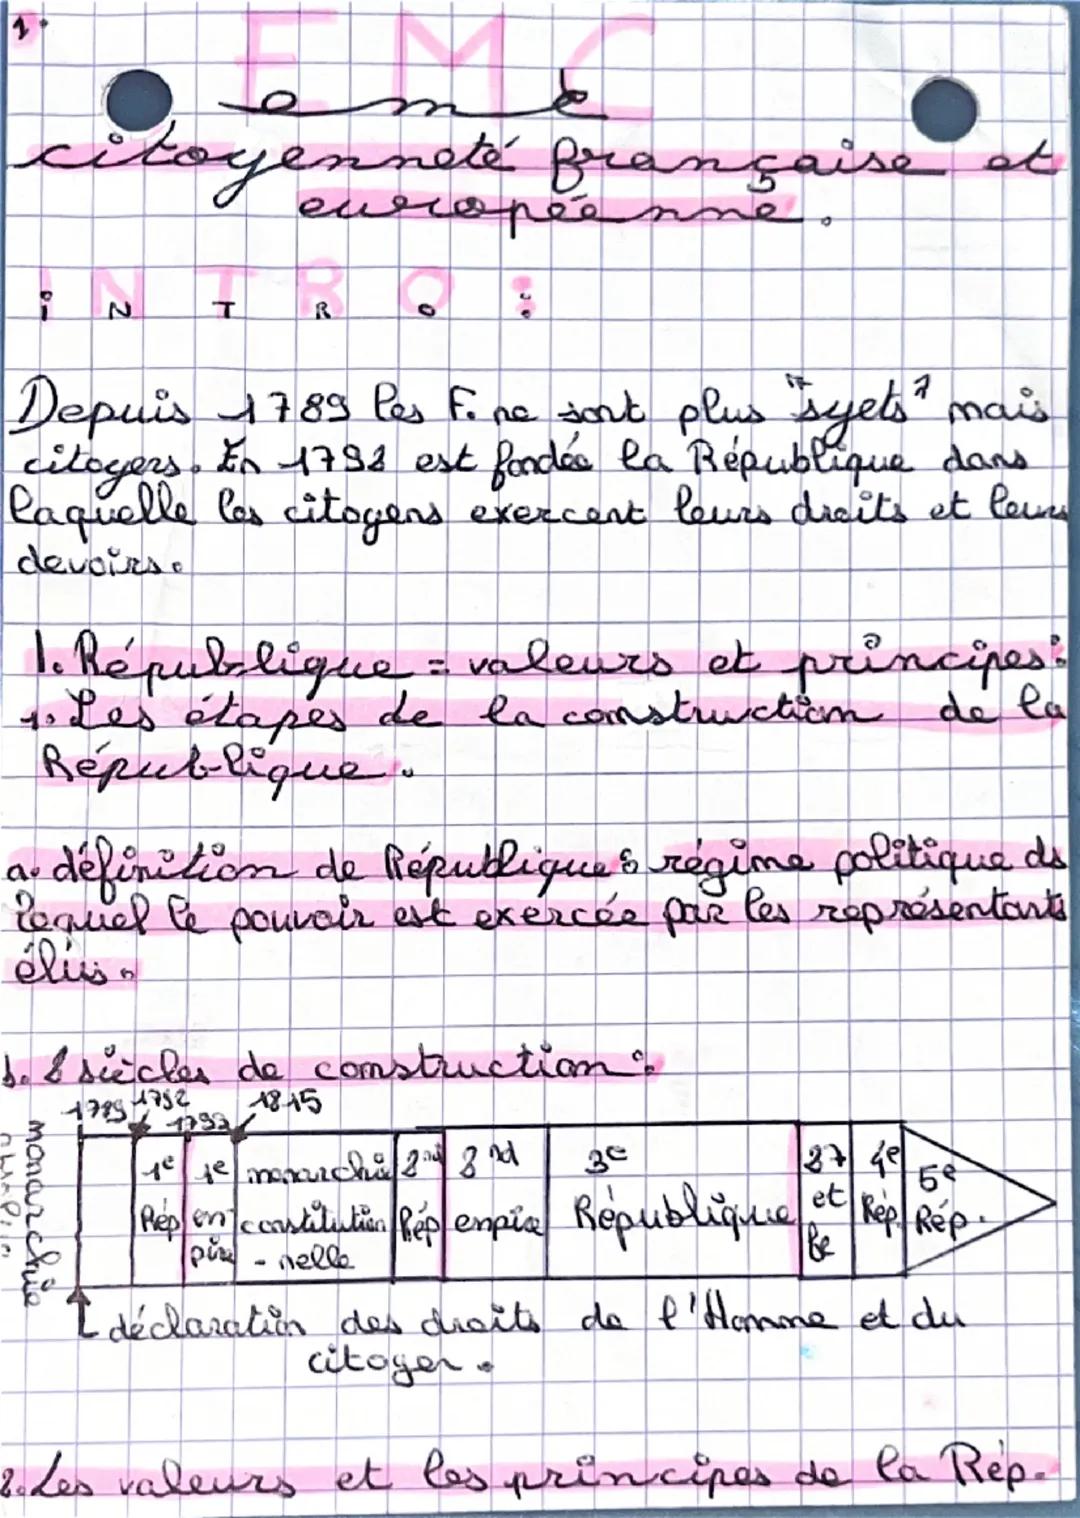 1.
EMC
emc
citoyenneté française et
européenne.
iNTRO :
Depuis 1789 les F. ne sont plus "sujets" mais
citoyens. En 1792 est fondée la République dans
laquelle les citoyens exercent leurs droits et leurs
devoirs.
1. République = valeurs et principes :
1. Les étapes de la construction de la
République.
a. définition de République : régime politique ds
lequel le pouvoir est exercée par les représentants
élus.
b. 2 siècles de construction :
1789 1792 1815
monarchie
1e Rép
1e empire
monarchie constitution-nelle
2nd Rép
2nd empire
3e République
2 et
4e Rép.
5e Rép.
déclaration des droits de l'Homme et du
citoyen.
2. Les valeurs et les principes de la Rép.